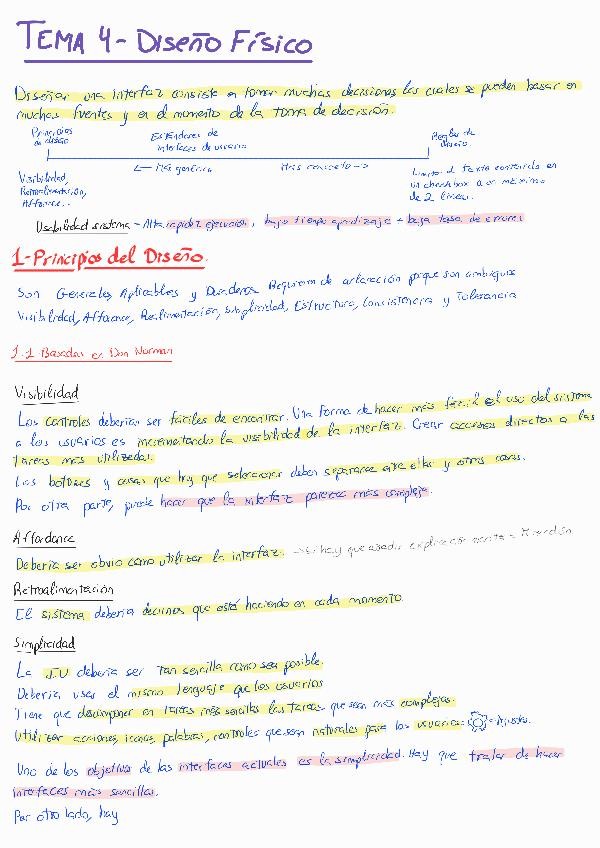 TEMA 4 - Diseño Físico
Diseñar una interfaz consiste en tomar muchas decisiones las cuales se pueden basar en
muchas fuentes y en el momento de la toma de decisión.
Principios de diseño
Estándares de interfaces de usuario
Reglas de diseño
<-- Más genérico
Más concreto ->
Visibilidad,
Retroalimentación,
Affordance...
Límite d texto contenido en
un checkbox a un máximo
de 2 líneas.
Usabilidad sistema - Alta rapidez ejecución, bajo tiempo aprendizaje + baja tasa de errores
1-Principios del Diseño.
Son Generales, Aplicables y Duraderos. Requieren de aclaración porque son ambiguos
Visibilidad, Affordance, Realimentación, Simplicidad, Estructura, Consistencia y Tolerancia
1.1 Basadas en Don Norman
Visibilidad
Los controles deberían ser fáciles de encontrar. Una forma de hacer más fácil el uso del sistema
a los usuarios es incrementando la visibilidad de la interfaz. Crear accesos directos a las
tareas más utilizadas.
Los botones y cosas que hay que seleccionar deben separarse entre ellas y otras cosas.
Por otra parte, puede hacer que la interfaz parezca más compleja.
Affordance
Debería ser obvio como utilizar la interfaz. -> Si hay que añadir explicación escrita =
Retroalimentación
El sistema debería decirnos que está haciendo en cada momento.
Simplicidad
La IU debería ser tan sencilla como sea posible.
Debería usar el mismo lenguaje que los usuarios
Tiene que descomponer en tareas más sencillas las tareas que sean más complejas.
Utilizar acciones, iconos, palabras, controles que sean naturales para los usuarios = Ajustes.
Uno de los objetivos de las interfaces actuales es la simplicidad. Hay que tratar de hacer
interfaces más sencillas.
Por otro lado, hay